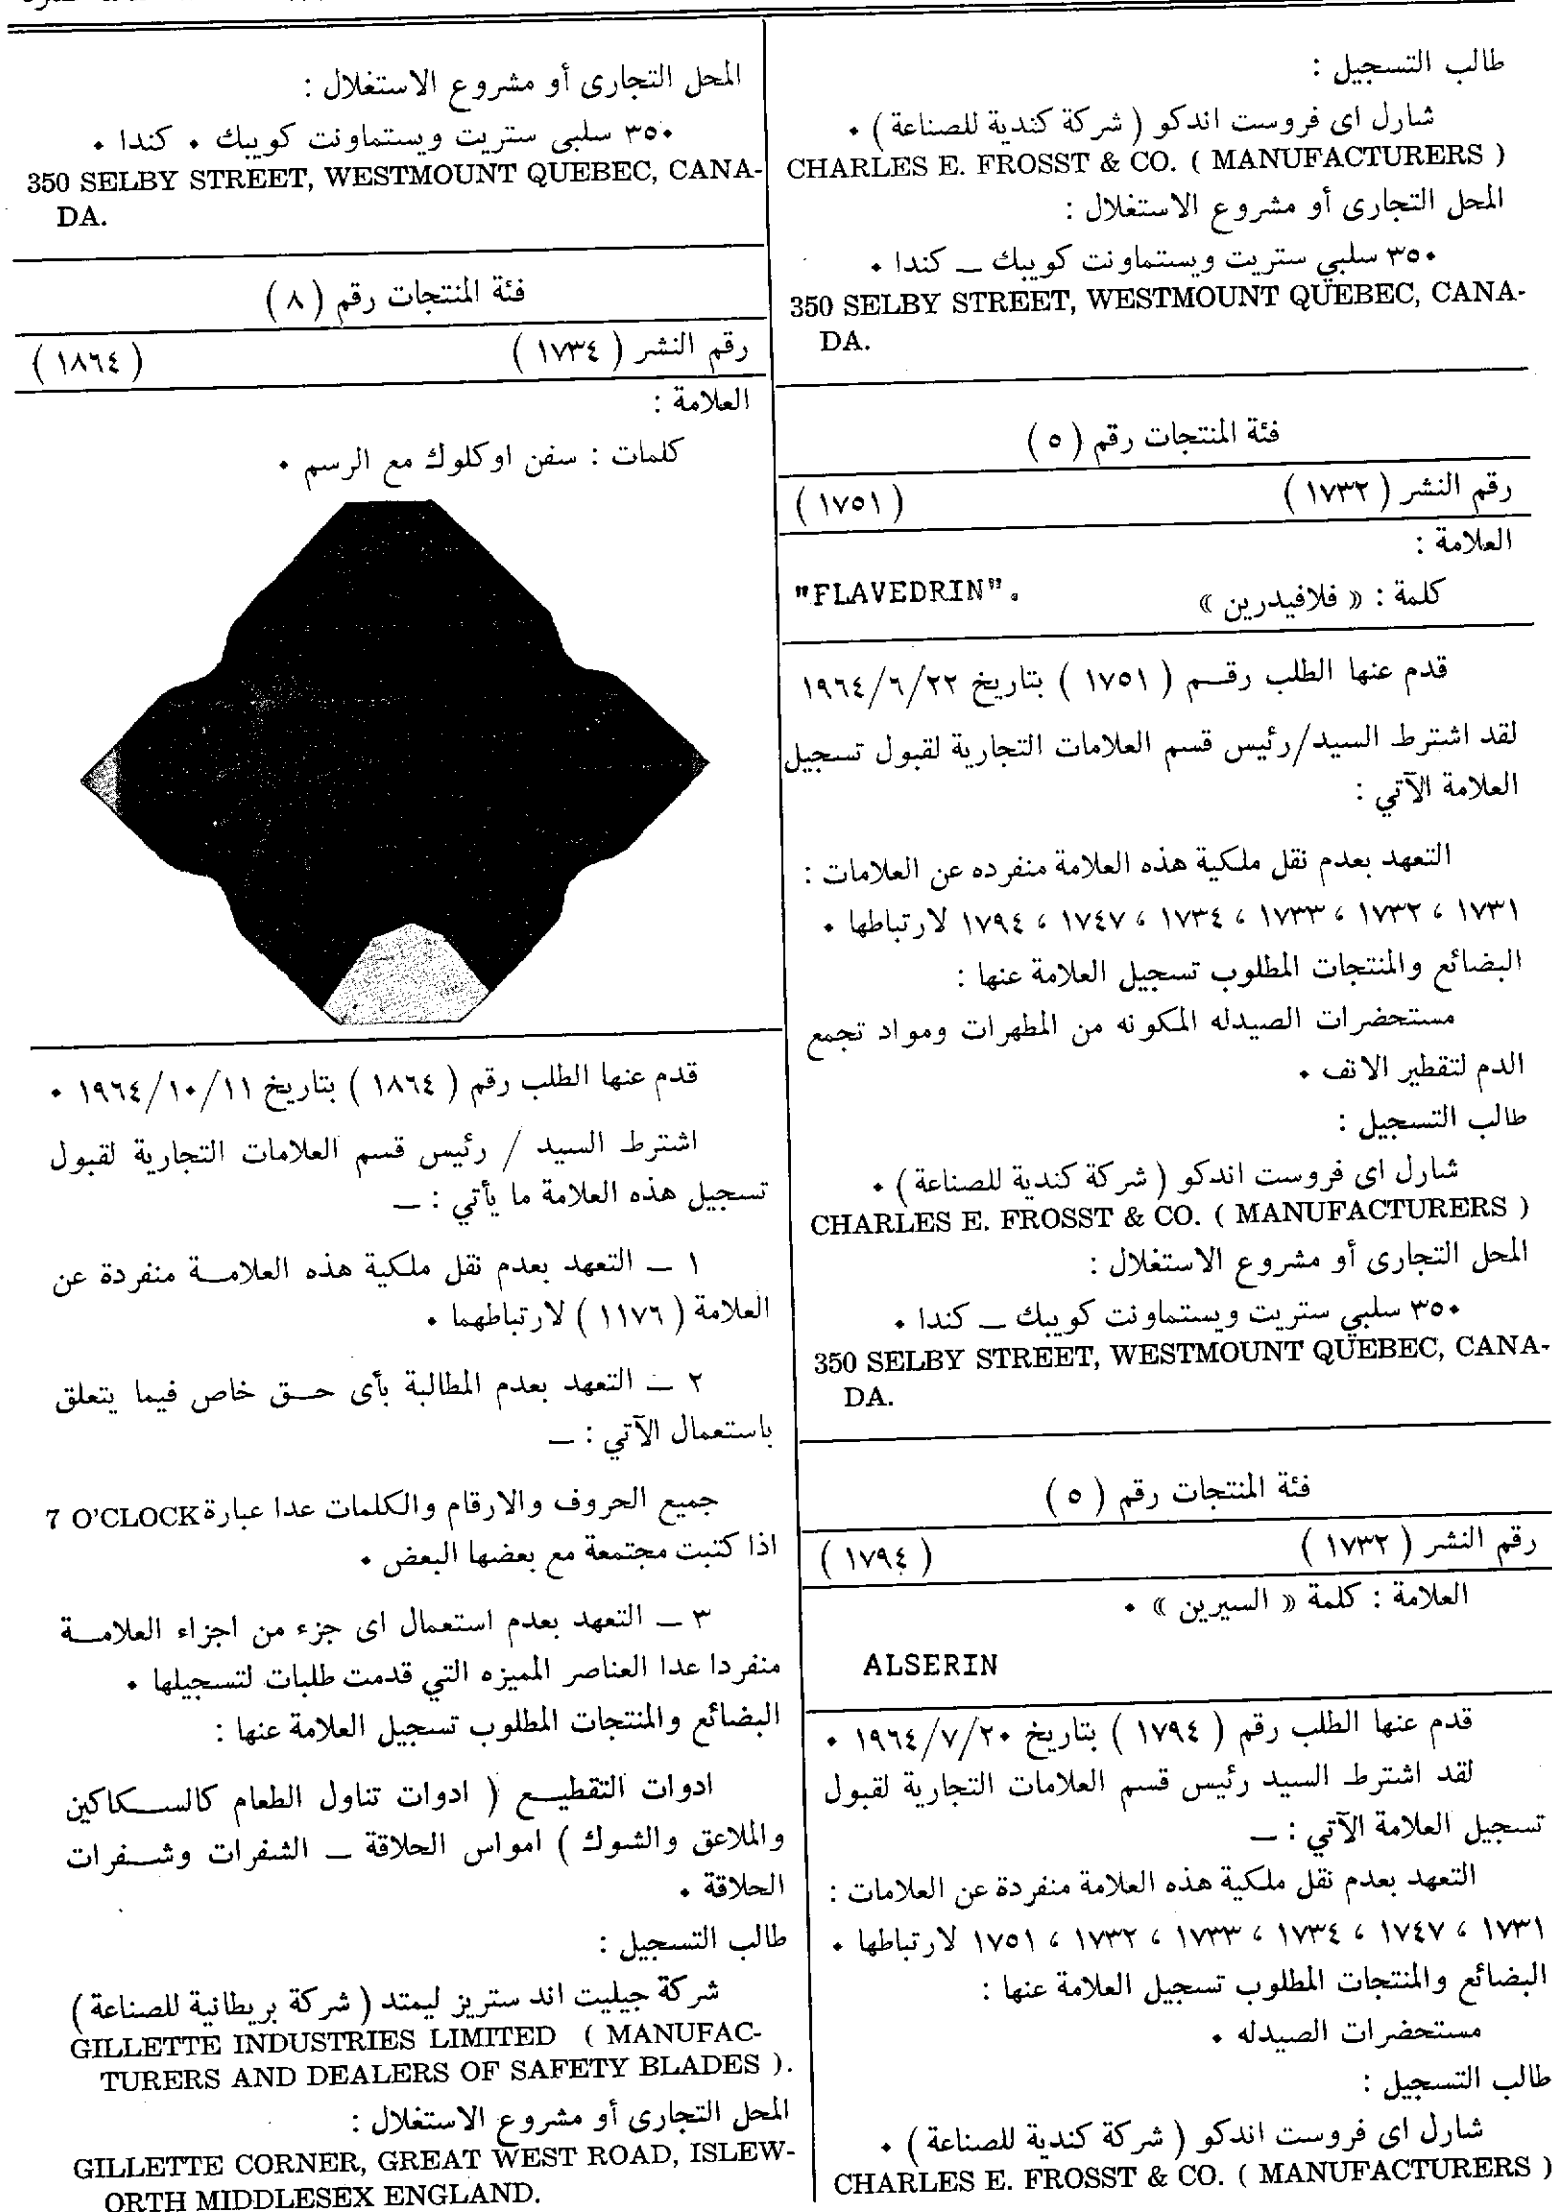 طالب التسجيل :
شارل اى فروست اندكو ( شركة كندية للصناعة ) .
CHARLES E. FROSST & CO. ( MANUFACTURERS )
المحل التجارى أو مشروع الاستغلال :
٣٥٠ سلبي ستريت ويستماونت كويبك ـ كندا .
350 SELBY STREET, WESTMOUNT QUEBEC, CANA-
DA.
فئة المنتجات رقم ( ٥ )
رقم النشر ( ١٧٣٢ ) ( ١٧٥١ )
العلامة :
كلمة : « فلافيدرين » "FLAVEDRIN".
قدم عنها الطلب رقم ( ١٧٥١ ) بتاريخ ١٩٦٤/٦/٢٢
لقد اشترط السيد/رئيس قسم العلامات التجارية لقبول تسجيل
العلامة الآتي :
التعهد بعدم نقل ملكية هذه العلامة منفرده عن العلامات :
١٧٣١ ، ١٧٣٢ ، ١٧٣٣ ، ١٧٣٤ ، ١٧٤٧ ، ١٧٩٤ لارتباطها .
البضائع والمنتجات المطلوب تسجيل العلامة عنها :
مستحضرات الصيدله المكونه من المطهرات ومواد تجمع
الدم لتقطير الانف .
طالب التسجيل :
شارل اى فروست اندكو ( شركة كندية للصناعة ) .
CHARLES E. FROSST & CO. ( MANUFACTURERS )
المحل التجارى أو مشروع الاستغلال :
٣٥٠ سلبي ستريت ويستماونت كويبك ـ كندا .
350 SELBY STREET, WESTMOUNT QUEBEC, CANA-
DA.
فئة المنتجات رقم ( ٥ )
رقم النشر ( ١٧٣٢ ) ( ١٧٩٤ )
العلامة : كلمة « السيرين » .
ALSERIN
قدم عنها الطلب رقم ( ١٧٩٤ ) بتاريخ ١٩٦٤/٧/٢٠ .
لقد اشترط السيد رئيس قسم العلامات التجارية لقبول
تسجيل العلامة الآتي : ـ
التعهد بعدم نقل ملكية هذه العلامة منفردة عن العلامات :
١٧٣١ ، ١٧٤٧ ، ١٧٣٤ ، ١٧٣٣ ، ١٧٣٢ ، ١٧٥١ لارتباطها .
البضائع والمنتجات المطلوب تسجيل العلامة عنها :
مستحضرات الصيدله .
طالب التسجيل :
شارل اى فروست اندكو ( شركة كندية للصناعة ) .
CHARLES E. FROSST & CO. ( MANUFACTURERS )
المحل التجارى أو مشروع الاستغلال :
٣٥٠ سلبى ستريت ويستماونت كويبك . كندا .
350 SELBY STREET, WESTMOUNT QUEBEC, CANA-
DA.
فئة المنتجات رقم ( ٨ )
رقم النشر ( ١٧٣٤ ) ( ١٨٦٤ )
العلامة :
كلمات : سفن اوكلوك مع الرسم .
قدم عنها الطلب رقم ( ١٨٦٤ ) بتاريخ ١٩٦٤/١٠/١١ .
اشترط السيد / رئيس قسم العلامات التجارية لقبول
تسجيل هذه العلامة ما يأتي : ـ
١ ـ التعهد بعدم نقل ملكية هذه العلامة منفردة عن
العلامة ( ١١٧٦ ) لارتباطهما .
٢ ـ التعهد بعدم المطالبة بأى حق خاص فيما يتعلق
باستعمال الآتي : ـ
جميع الحروف والارقام والكلمات عدا عبارة 7 O'CLOCK
اذا كتبت مجتمعة مع بعضها البعض .
٣ ـ التعهد بعدم استعمال اى جزء من اجزاء العلامة
منفردا عدا العناصر المميزه التي قدمت طلبات لتسجيلها .
البضائع والمنتجات المطلوب تسجيل العلامة عنها :
ادوات التقطيع ( ادوات تناول الطعام كالسكاكين
والملاعق والشوك ) امواس الحلاقة ـ الشفرات وشفرات
الحلاقة .
طالب التسجيل :
شركة جيليت اند ستريز ليمتد ( شركة بريطانية للصناعة )
GILLETTE INDUSTRIES LIMITED ( MANUFAC-
TURERS AND DEALERS OF SAFETY BLADES ).
المحل التجارى أو مشروع الاستغلال :
GILLETTE CORNER, GREAT WEST ROAD, ISLEW-
ORTH MIDDLESEX ENGLAND.